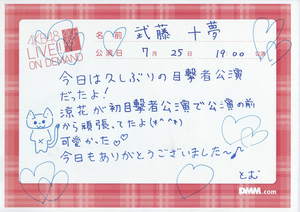 AKB48
LIVE!!
ON DEMAND
名前 武藤 十夢
公演日 7月25日 19:00 公演
今日は久しぶりの目撃者公演
だったよ!
涼花が初目撃者公演で公演の前
から頑張ってたよ(*^^*)
可愛かった♡♡
今日もありがとうございました〜♪
とむ
DMM.com